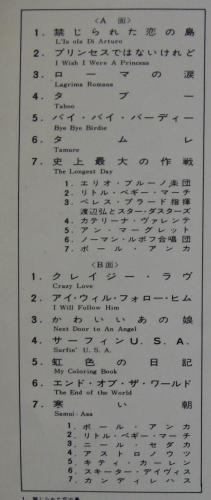 <A 面>
1. 禁じられた恋の島
L'Is ola Di Arturo
2. プリンセスではないけれど
I Wish I Were A Princess
3. ローマの涙
Lagrima Romans
4. タブー
Taboo
5. バイ・バイ・バーディー
Bye Bye Birdie
6. タムレ
Tamure
7. 史上最大の作戦
The Longest Day
1. エリオ・ブルーノ楽団
2. リトル・ペギー・マーチ
3. ペレス・プラード指揮
渡辺弘とスター・ダスターズ
4. カテリーナ・ヴァレンテ
5. アン・マーグレット
6. ノーマン・ルボフ合唱団
7. ポール・アンカ
<B面>
1. クレイジー・ラヴ
Crazy Love
2. アイ・ウィル・フォロー・ヒム
I Will Follow Him
3. かわいいあの娘
Next Door to An Angel
4. サーフィンU. S. A.
Surfin' U. S. A.
5. 虹色の日記
My Coloring Book
6. エンド・オブ・ザ・ワールド
The End of the World
7. 寒い朝
Samui-Asa
1. ポール・アンカ
2. リトル・ペギー・マーチ
3. ニール・セダカ
4. アストロノウツ
5. キティ・カーレンス
6. スキーター・デイヴィス
7. カンディレハス